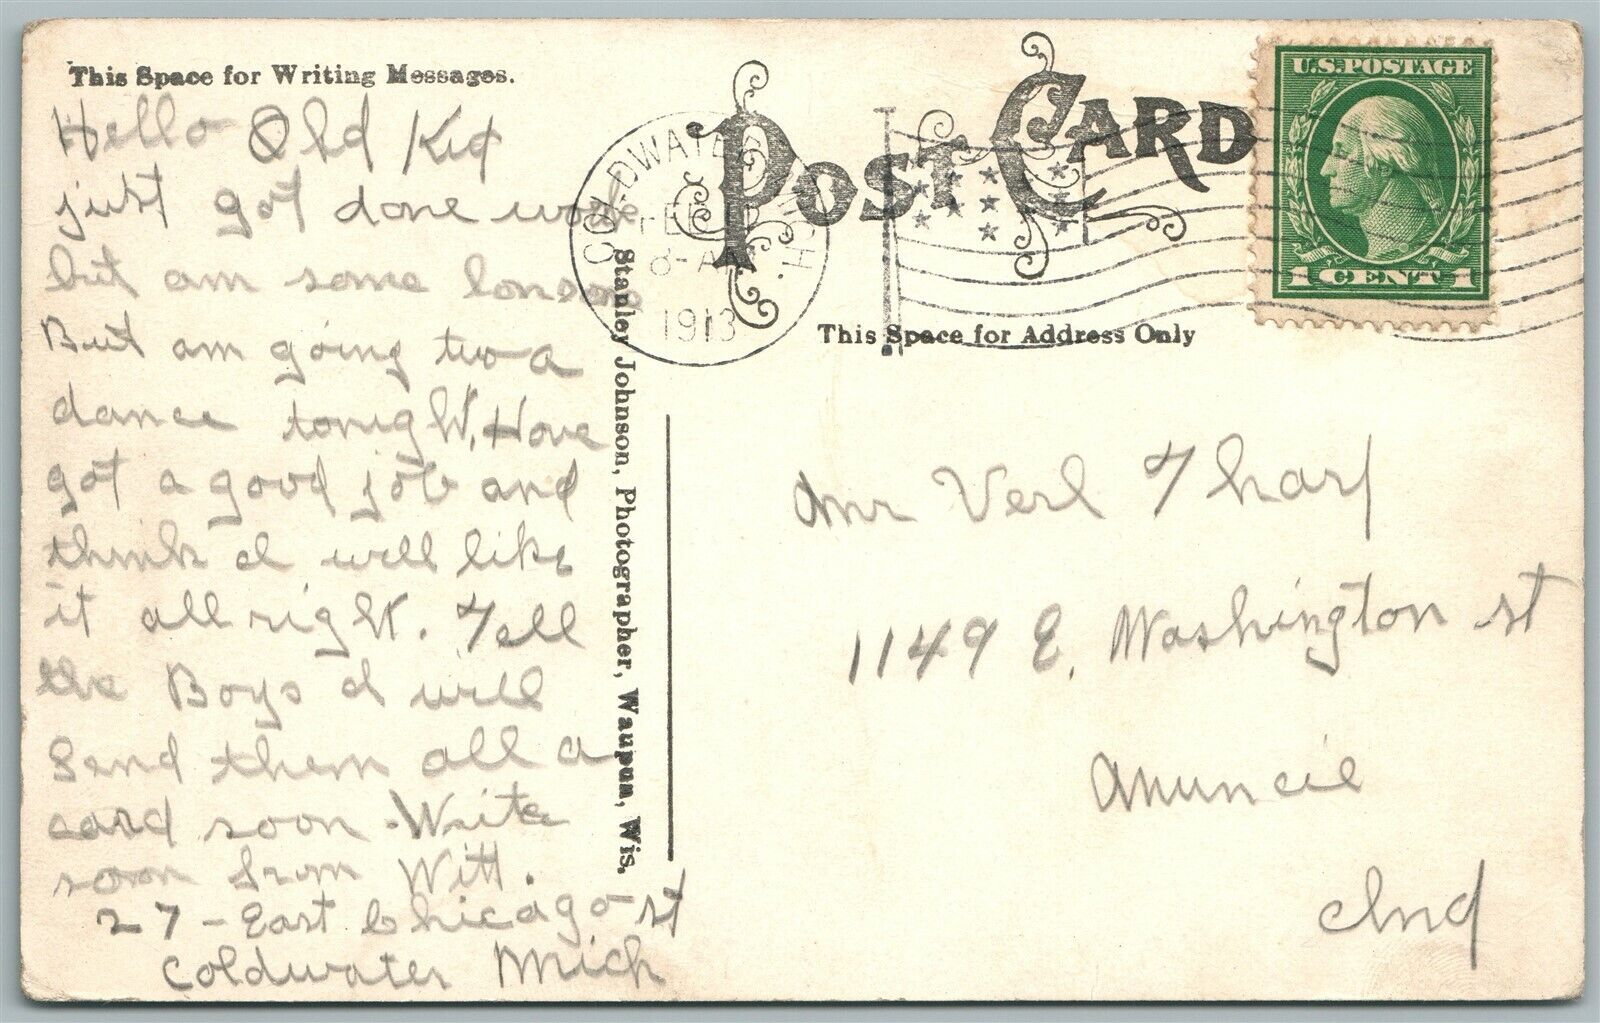 This Space for Writing Messages.
Hello Old Kid
just got done work
but am some lonsome
But am going two a
dance tonight, Have
got a good job and
think I will like
it all right. Tell
the Boys I will
Send them all a
card soon. Write
soon from Witt.
27 - East Chicago st
Coldwater Mich
Stanley Johnson, Photographer, Waupun, Wis.
POST CARD
COLDWATER MICH.
FEB
8-A
1913
U.S. POSTAGE
1 CENT 1
This Space for Address Only
Mr Verl Tharp
1149 E. Washington st
Muncie
Ind